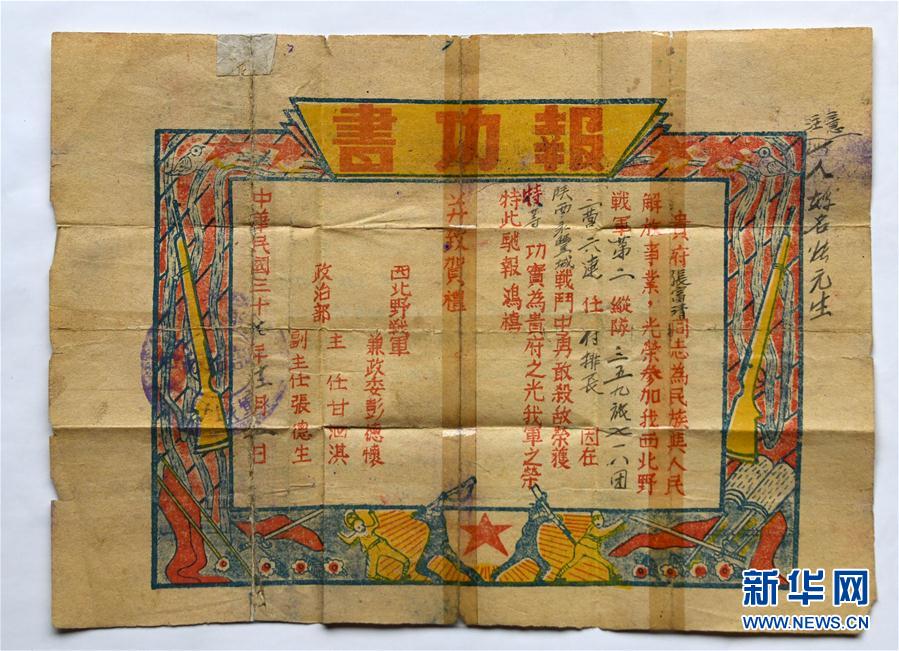 報功書
注意
人姓名张元生
貴府張富清同志為民族與人民
解放事業，光榮參加我西北野
戰軍第二縱隊三五九旅七一八团
二营六連任付排長 因在
陕西永豐城戰鬥中勇敢殺敌榮獲
特等功實為貴府之光我軍之榮
特此馳報鴻禧
并致賀禮
西北野戰軍
兼政委彭德懷
政治部
主任甘泗淇
副主任張德生
中華民國三十七年十二月日
新华网
WWW.NEWS.CN